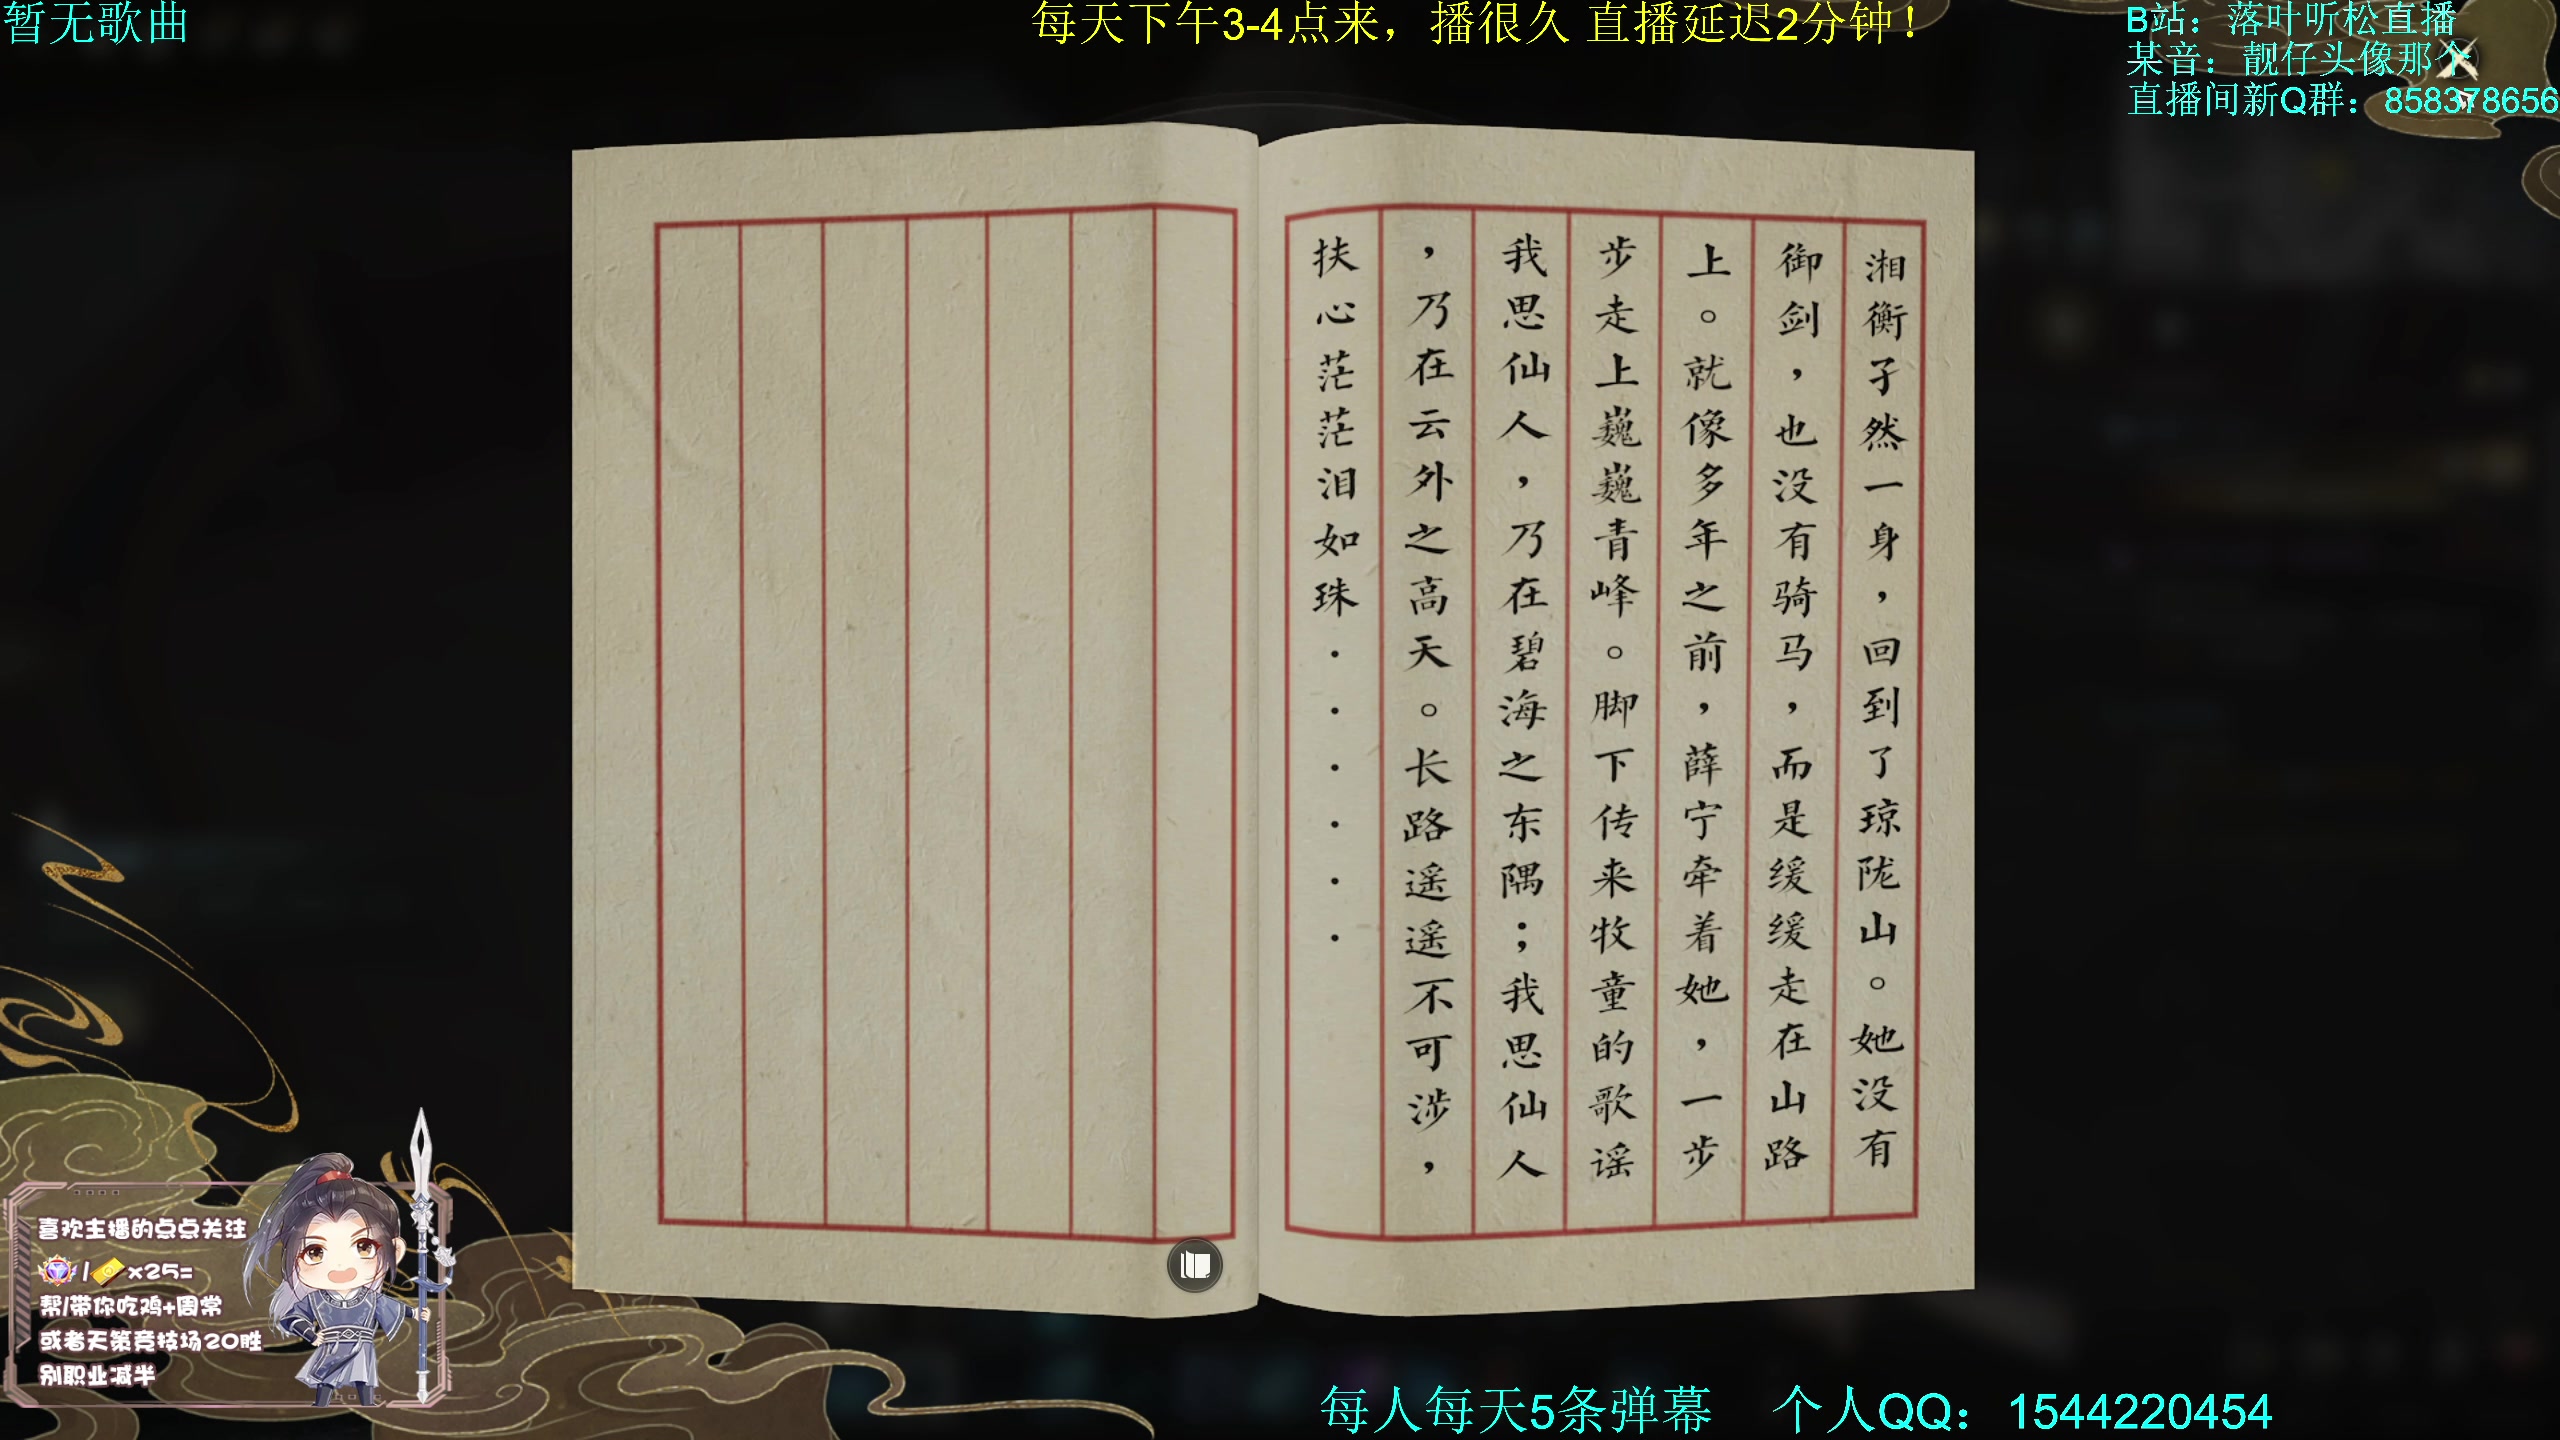 暂无歌曲
每天下午3-4点来，播很久 直播延迟2分钟！
B站：落叶听松直播
某音：靓仔头像那个
直播间新Q群：858378656
湘衡孑然一身，回到了琼陇山。她没有
御剑，也没有骑马，而是缓缓走在山路
上。就像多年之前，薛宁牵着她，一步
步走上巍巍青峰。脚下传来牧童的歌谣
我思仙人，乃在碧海之东隅；我思仙人
，乃在云外之高天。长路遥遥不可涉，
扶心茫茫泪如珠······
喜欢主播的点点关注
/x25=
帮/带你吃鸡+周常
或者天策竞技场20胜
别职业减半
每人每天5条弹幕 个人QQ：1544220454